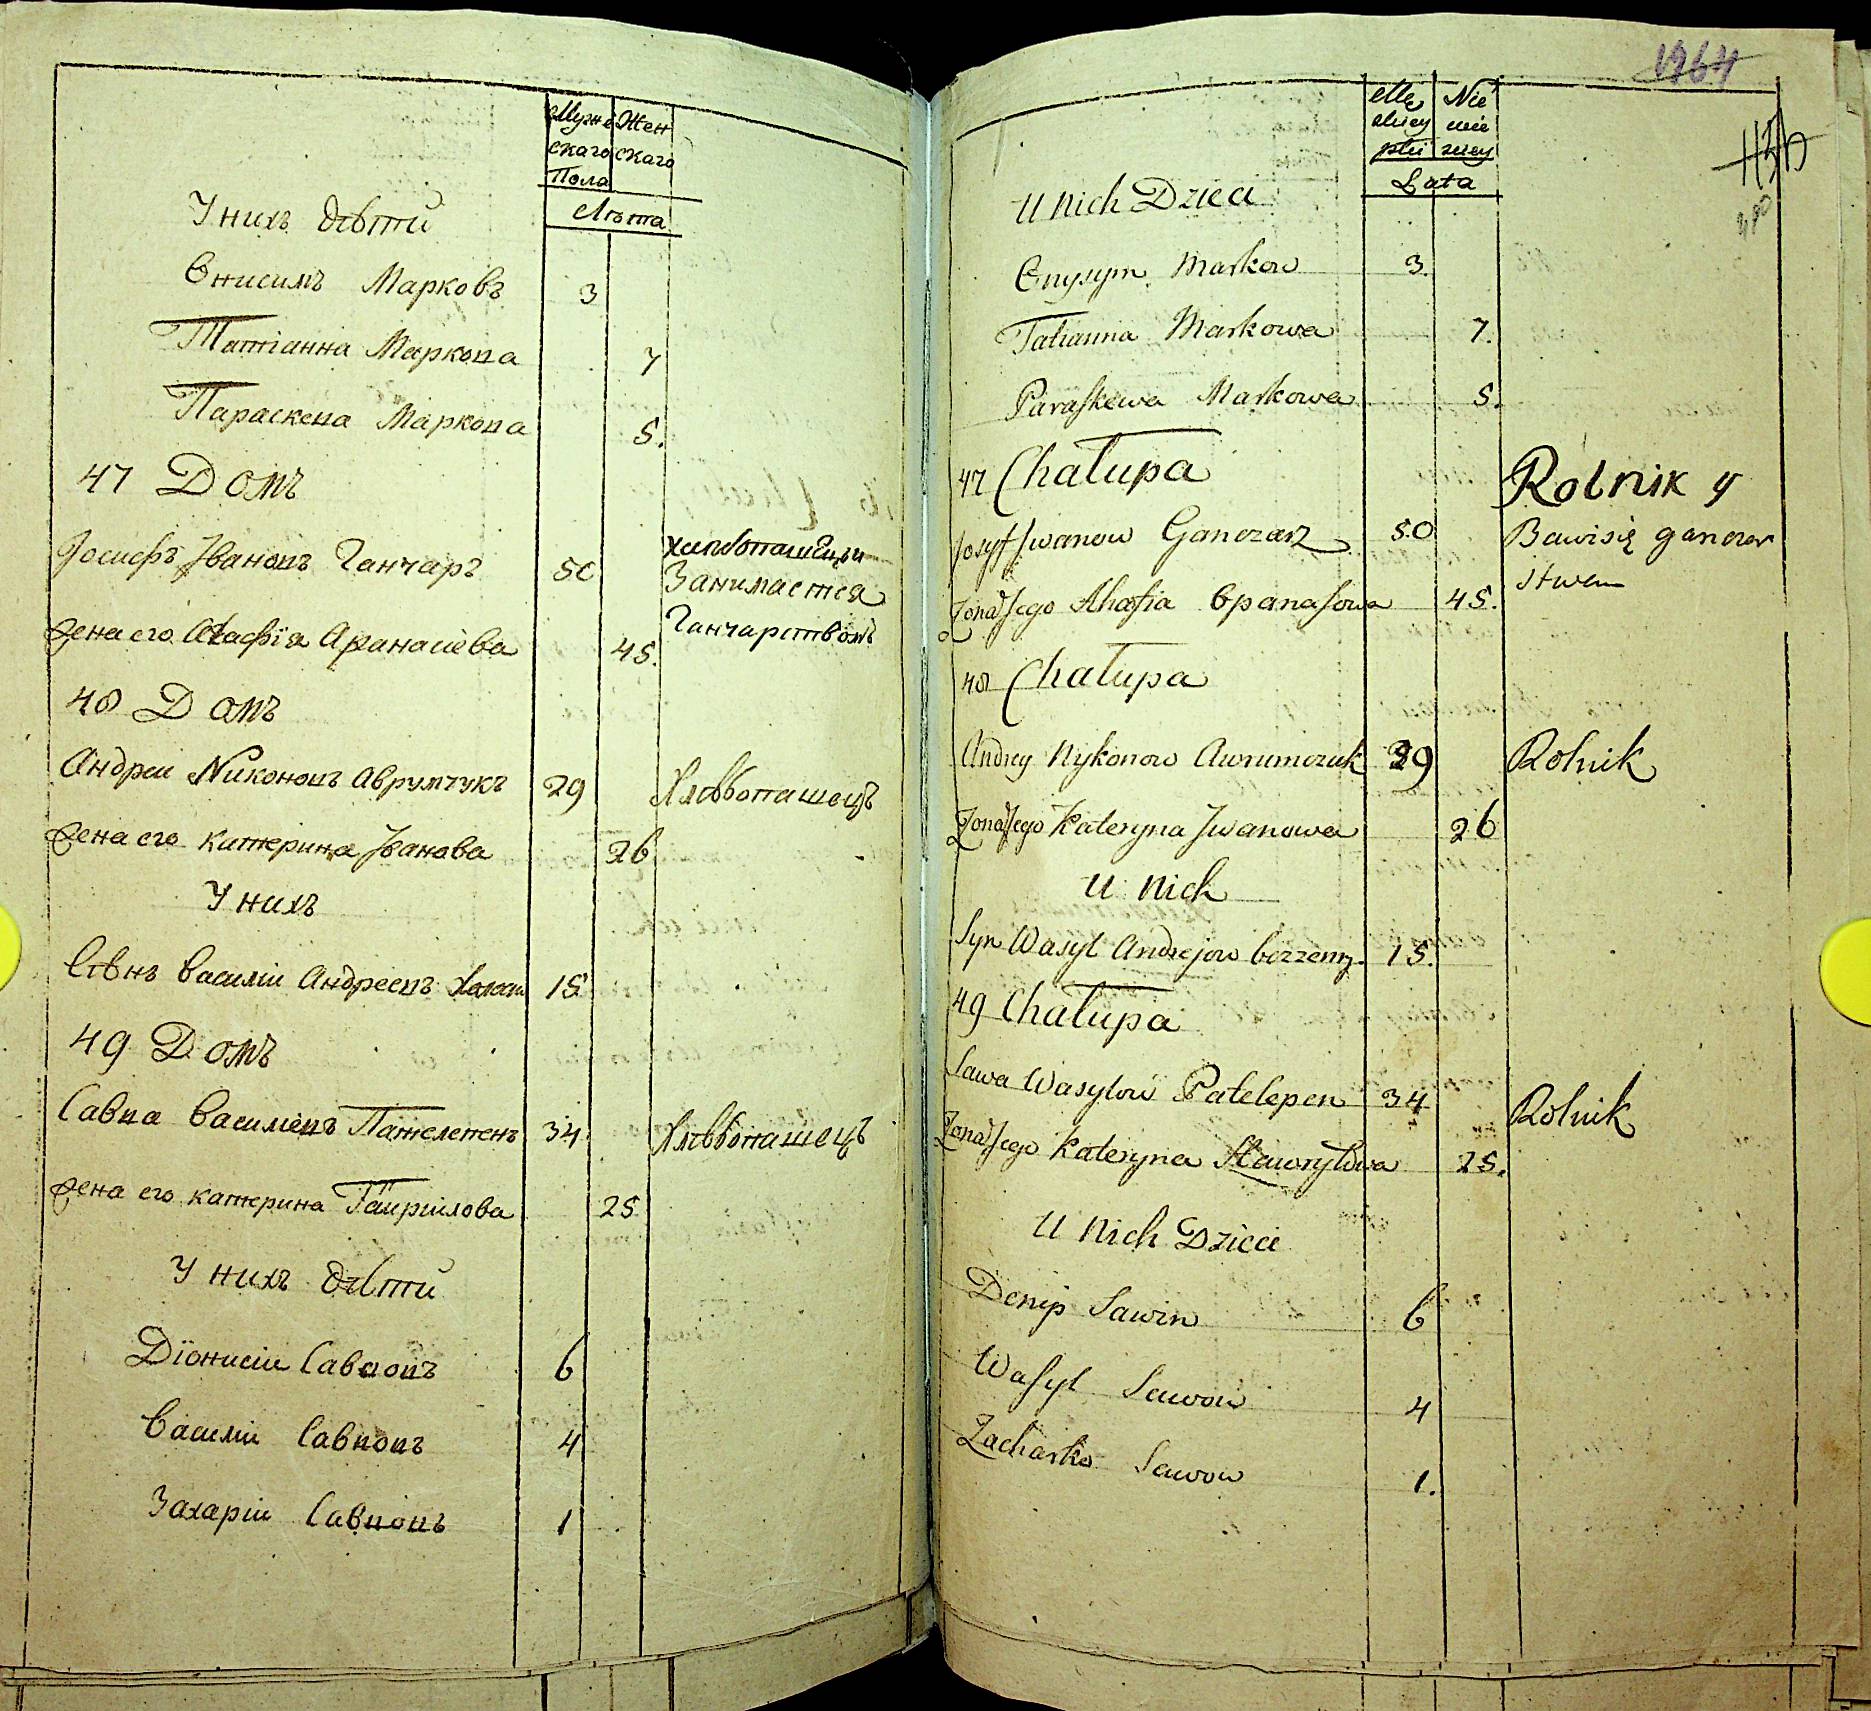 Мужескаго Женскаго
Пола
Лѣта
У нихъ дѣти
Онисимъ Марковъ 3
Татіанна Маркова 7
Параскева Маркова 5.
47 Домъ
Іосифъ Ивановъ Ганчаръ 50 Хлѣбопашецъ
Занимается
Ганчарствомъ
Жена его Агафія Афанасіева 45.
48 Домъ
Андрей Никоновъ Аврумчукъ 29 Хлѣбопашецъ
Жена его Катерина Иванова 26
У нихъ
Сынъ Василій Андреевъ Холост 15
49 Домъ
Савва Василіевъ Пателепенъ 34 Хлѣбопашецъ
Жена его Катерина Гавріилова 25
У нихъ дѣти
Діонисій Саввовъ 6
Василій Саввовъ 4
Захарій Саввовъ 1
1964
Męzkiey płci
Lata
U nich Dzieci
Onysym Markow 3.
Tatianna Markowa 7.
Paraskewa Markowa 5.
47 Chałupa
Rolnik y
Josyf Jwanow Ganczarz 50 Bawi się ganczar
stwem
Żona Jego Ahafia Opanasowa 45.
48 Chałupa
Andrey Nykonow Awrumczuk 29 Rolnik
Żona Jego Kateryna Jwanowa 26
U nich
Syn Wasyl Andrejow bezżenny 15.
49 Chałupa
Sawa Wasylow Patelepen 34 Rolnik
Żona Jego Kateryna Hawryłowa 25.
U nich Dzieci
Denys Sawin 6
Wasyl Sawow 4
Zacharko Sawow 1.